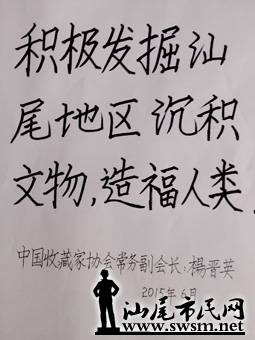 积极发掘汕
尾地区沉积
文物，造福人类
中国收藏家协会常务副会长：楊晋英
2015年6月
汕尾市民网
www.swsm.net